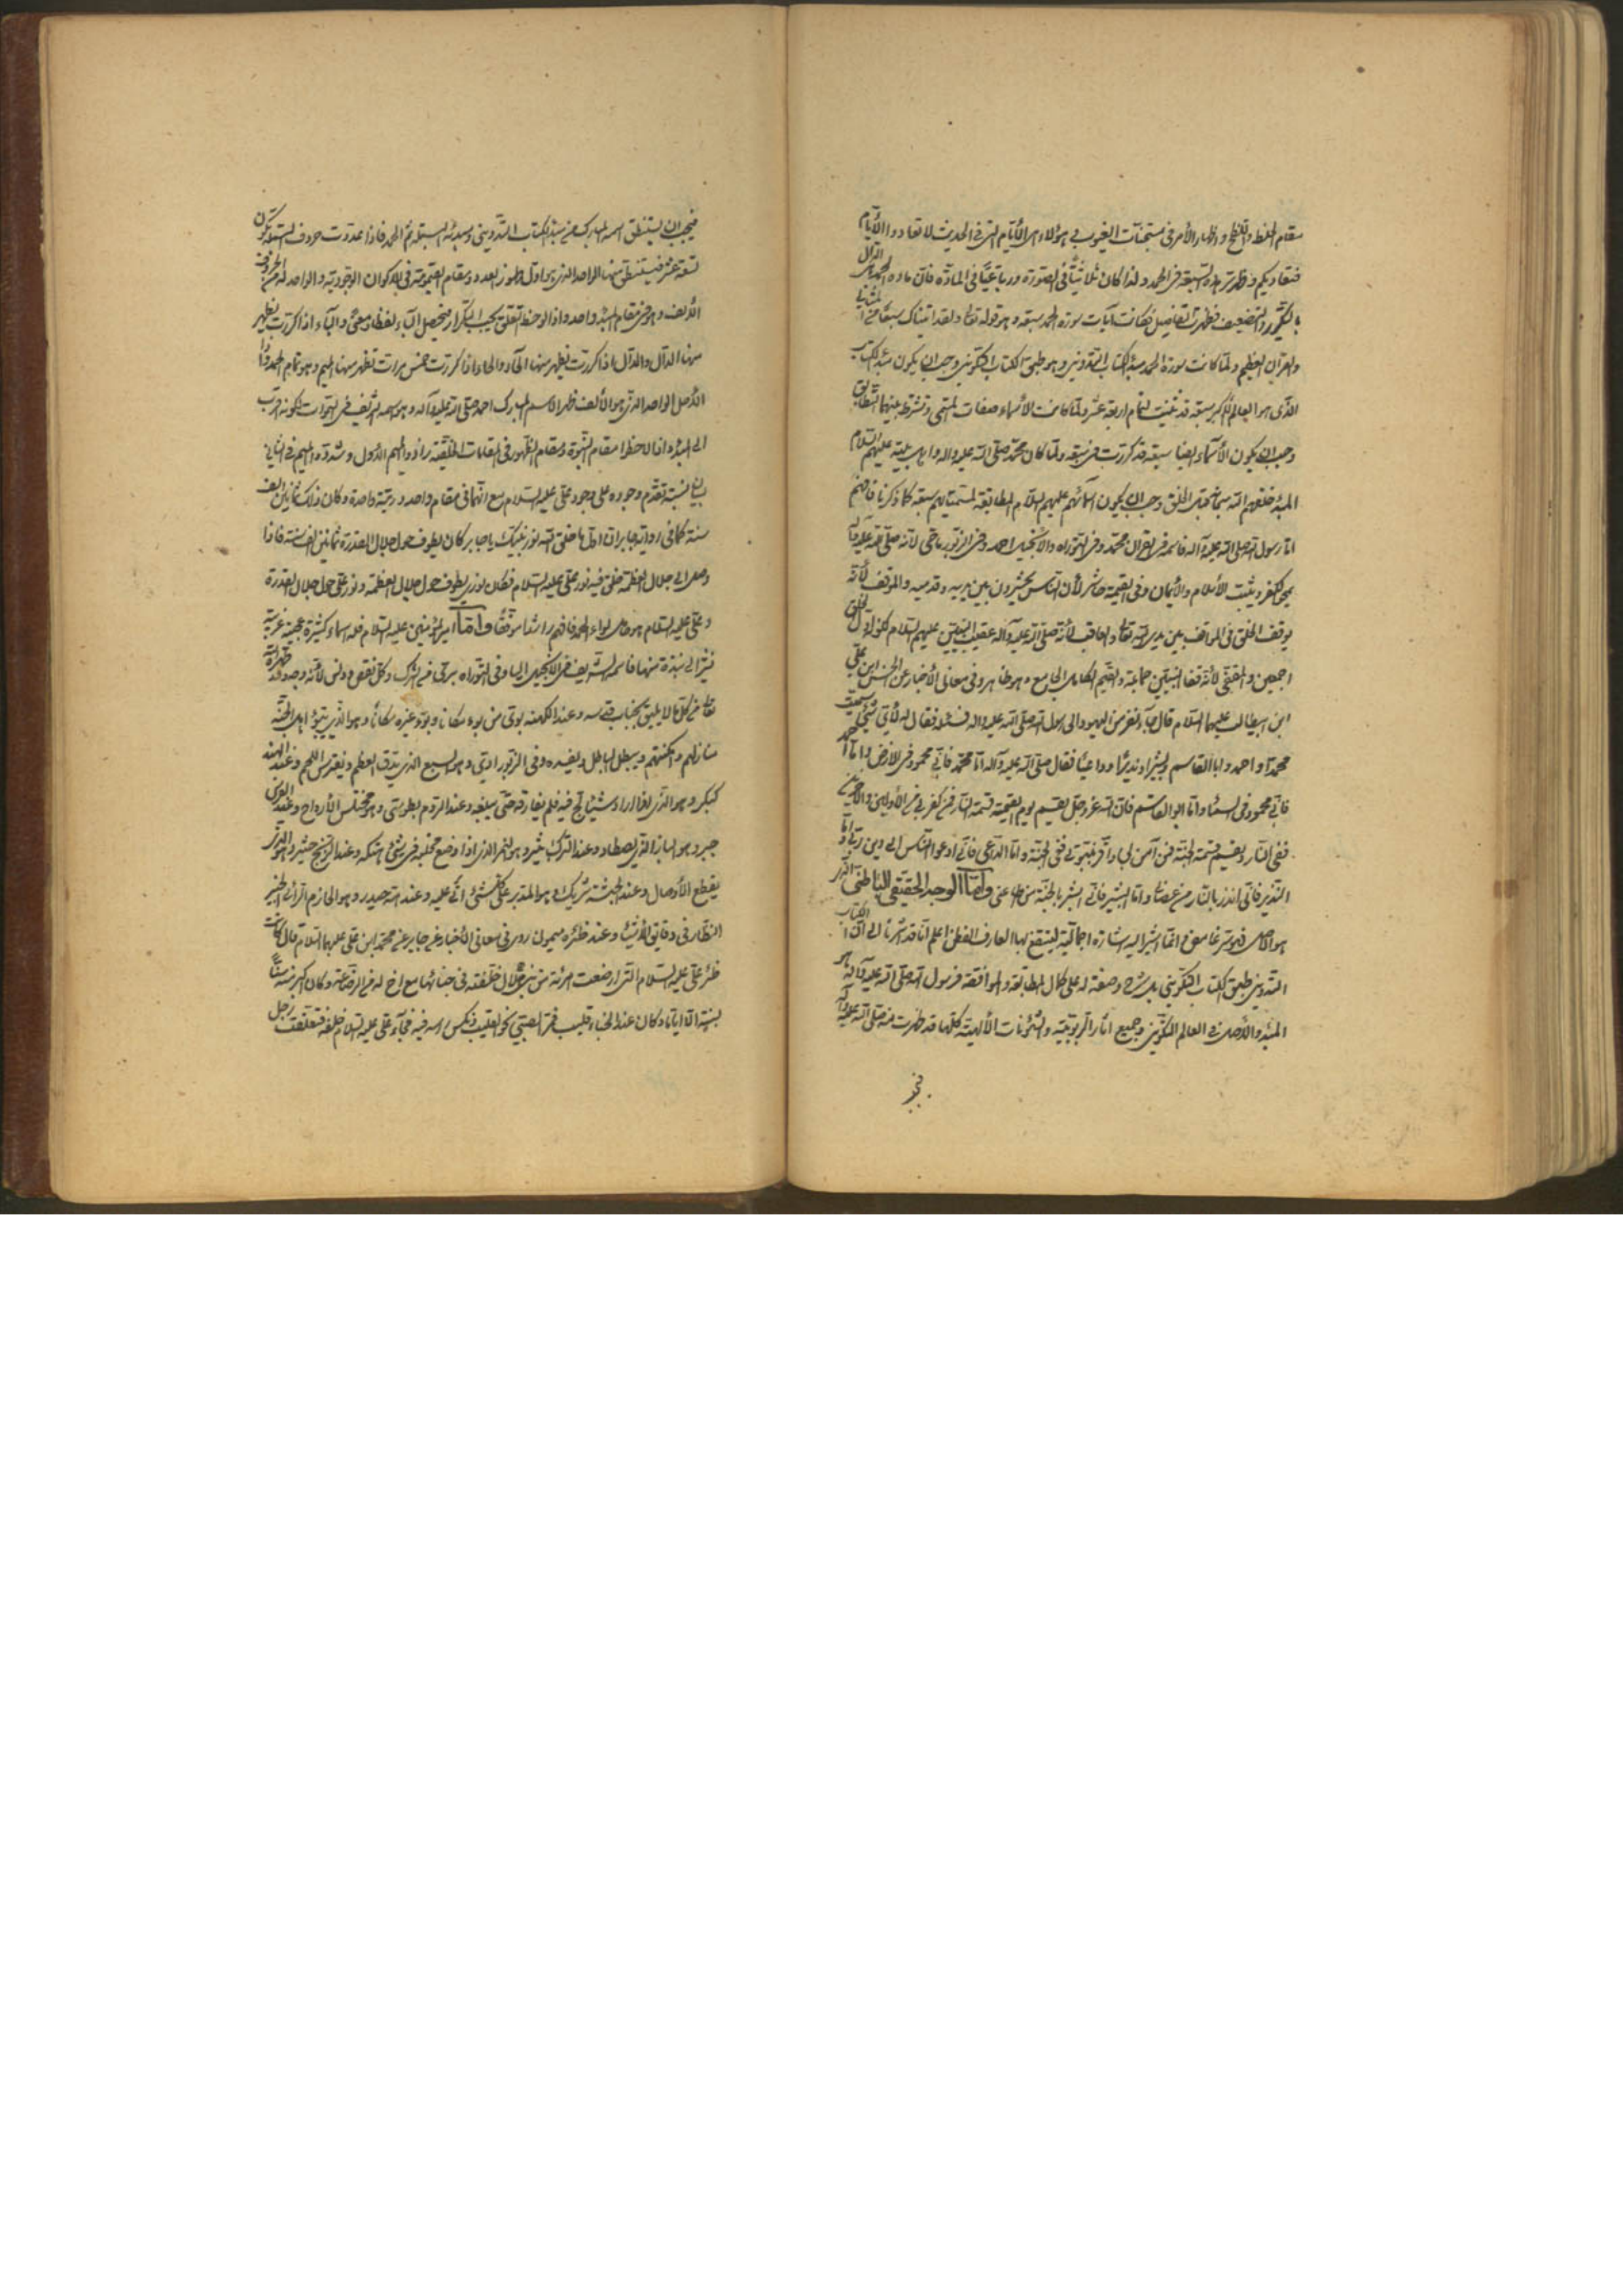 مقام الخلط واللطخ و اظهار الأمر فى مستجنات الغيوب فى هؤلاء هى الأيام التى فى الحديث لا تعادوا الأيام
فتعاديكم و ظهرت هذه السبعة فى الحمد و لذا كان ثلاثيا فى الصورة و رباعيا فى المادة فان ماده الحمد هى الدال
بالتكرير والتضعيف فظهرت التفاصيل فكانت آيات سورة الحمد سبعة و هو قوله تعالى و لقد اتيناك سبعا من المثانى
والقرآن العظيم و لما كانت سورة الحمد مبدأ الكتاب التدوينى و هو طبق الكتاب التكوينى وجب ان يكون مبدأ الكتاب
الذى هو العالم الأكبر سبعة قد ثنيت لتمام اربعة عشر و لما كانت الأسماء صفات المسمى و تشترط بينهما التطابق
وجب ان يكون الأسماء ايضا سبعة قد كررت فى سبعة و لما كان محمد صلى الله عليه واله و اهل بيته عليهم السلام
المبدء خلقهم الله سبحانه قبل الخلق وجب ان يكون اسمائهم عليهم السلام المطابقة لمسمياتهم سبعة كما ذكرنا فافهم
اما رسول الله صلى الله عليه وآله فاسمه فى القرآن محمد و فى التوراه والأنجيل احمد و فى الزبور ماحى لأنه صلى الله عليه وآله
يمحى الكفر و يثبت الأسلام والأيمان و فى القيمة حاشر لأن الناس يحشرون بين يديه و قدميه والموقف لأنه
يوقف الخلق فى المواقف بين يدى الله تعالى والعاقب لأنه صلى الله عليه وآله عقيب النبيين عليهم السلام
اجمعين و المقفى لأنه قفا النبيين جماعة والقيم الكامل الجامع و هو ظاهر و فى معانى الأخبار عن الحسن ابن على
ابن ابيطالب عليهما السلام قال جاء نفر من اليهود الى رسول الله صلى الله عليه واله فسئله فقال له لأى شئ سميت
محمدا و احمد و ابا القاسم و بشيرا و نذيرا و داعيا فقال صلى الله عليه وآله اما محمد فانى محمود فى الأرض و اما احمد
فانى محمود فى السماء و اما ابو القاسم فان الله عز وجل يقسم يوم القيمة قسمة النار فمن كفر بى من الأولين والآخرين
ففى النار و يقسم قسمة الجنة فمن آمن بى و اقر بنبوتى ففى الجنة و اما الداعى فانى ادعو الناس الى دين ربى و اما
النذير فانى انذر بالنار من عصانى و اما البشير فانى ابشر بالجنة من اطاعنى و اما الوجه الحقيقى الباطنى الذى
هو الأصل فهو سر غامض و انما اشير اليه اشارة اجمالية لينتفع بها العارف الفطن اعلم انا قد اشرنا الى ان الكتاب
التدوينى طبق الكتاب التكوينى بل شرح وصفة له على كمال المطابقة و الموافقة فرسول الله صلى الله عليه وآله هو
المبدء والأصل فى العالم التكوينى و جميع اثار الربوبية والشؤنات الألهية كلها قد ظهرت منه صلى الله عليه وآله
فيجب
فيجب ان يستنطق اسمه المبارك من مبدء الكتاب التدوينى و مبدئه البسملة ثم الحمد فاذا عددت حروف البسملة تكون
تسعة عشر فيستنطق منها الواحد الذى هو اول ظهور العدد و مقام القيومية فى الاكوان الوجودية و الواحد له من الحروف
الألف و هو فى مقام المبدء واحد و اذا لوحظ التعلق يجب التكرار فيحصل الباء لفظا و معنى و الباء اذا كررت يظهر
منها الدال والدال اذا كررت يظهر منها الحاء والحاء اذا كررت خمس مرات تظهر منها الميم و هو تمام الحمد و اذا
الأصل الواحد الذى هو الألف ظهر الاسم المبارك احمد صلى الله عليه وآله و هو اسمه الشريف فى السموات لكونه اقرب
الى المبدء و اذا لاحظوا مقام النبوة و مقام الظهور فى المقامات الخلقية زادوا الميم الأول و شددوا الميم فى الثانى
لبيان نسبة تقدم وجوده على وجود على عليه السلام مع انهما فى مقام واحد و رتبة واحدة و كان ذلك ثمانين الف
سنة كما فى رواية جابر ان اول ما خلق الله نور نبيك يا جابر كان يطوف حول جلال القدرة ثمانين الف سنة فاذا
وصل الى جلال العظمة خلق فيه نور على عليه السلام فكان نورى يطوف حول جلال العظمة و نور على حول جلال القدرة
و على عليه السلام هو حامل لواء الحمد فافهم راشدا موفقا و اما امير المؤمنين عليه السلام فله اسماء كثيرة عجيبة غريبة
نشير الى نبذة منها فاسمه الشريف فى الأنجيل اليا و فى التوراه برئ من الشرك و كل نقص و دنس لأنه وجه و قد طهره الله
تعالى من كل ما لا يليق بجناب قدسه و عند الكهنة بوئ من بوء مكانا و بوء غيره مكانا و هو الذى يبوء اهل الجنة
منازلهم و امكنتهم و يبطل الباطل و يفسده و فى الزبور ارى و هو السبع الذى يدق العظم و يفترس اللحم و عند الهند
كبكر و هو الذى اذا اراد شيئا لج فيه فلم يفارقه حتى يبلغه و عند الروم بطريسى و هو مختلس الأرواح و عند الفرس
جبر و هو الباز الذى يصطاد و عند الترك بثير و هو النمر الذى اذا وضع مخلبه فى شئ هتكه و عند الزنج حيتر و هو الذى
يقطع الأوصال و عند الحبشة بثريك و هو المدبر على كل شئ اتى عليه و عند امه حيدره و هو الحازم الرأى الخبير
النظار فى دقايق الأشياء و عند ظئره ميمون روى فى معانى الأخبار عن جابر عن محمد ابن على عليهما السلام قال كانت
ظئر على عليه السلام التى ارضعت امرئة من بنى هلال خلفته فى خبائها مع اخ له من الرضاعة و كان اكبر منه سنا
بسنة الا اياما و كان عند الخباء قليب فمر الصبى نحو القليب و نكس راسه فيه فجاء على عليه السلام خلفه فتعلقت رجل